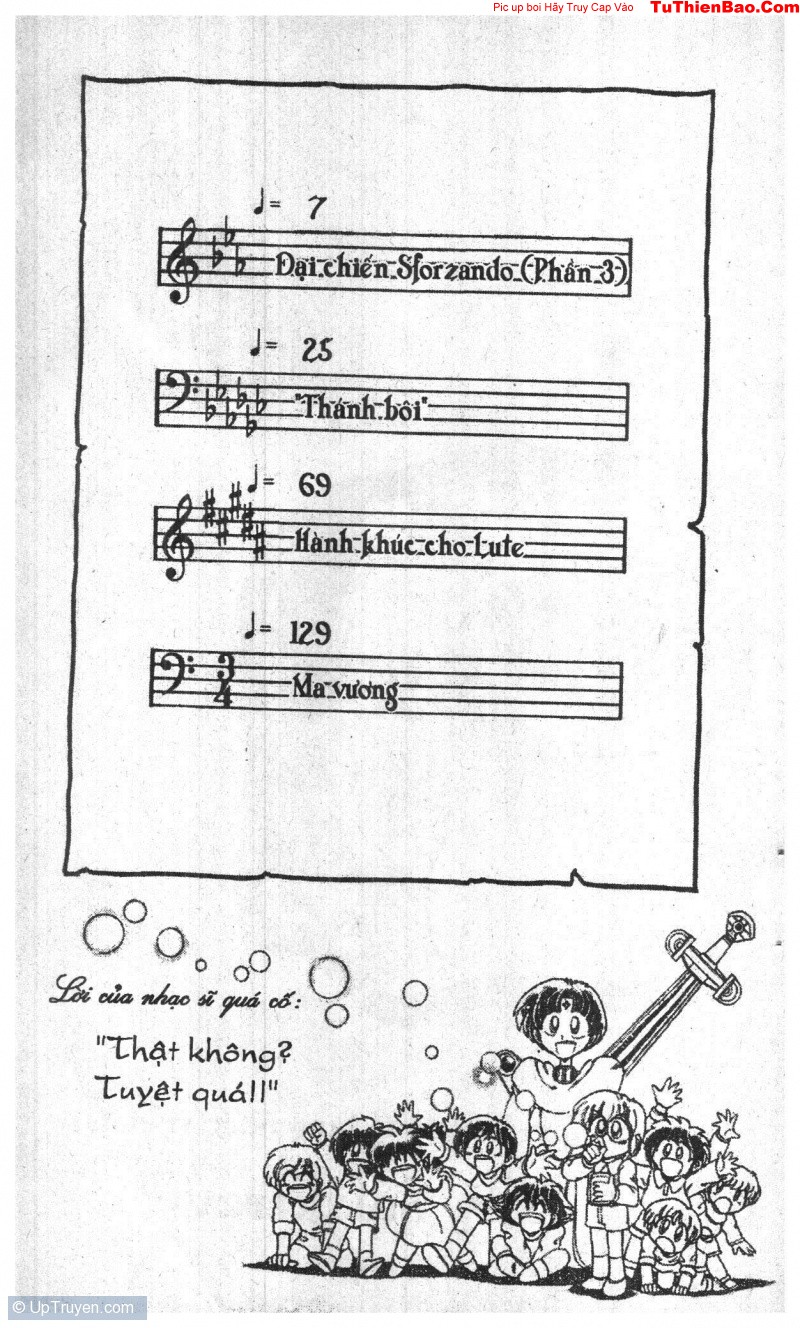 Pic up boi Hãy Truy Cap Vào TuThienBao.Com
♩= 7
Đại chiến Sforzando (Phần 3)
♩= 25
"Thánh bôi"
♩= 69
Hành khúc cho Lute
♩= 129
3
4
Ma vương
Lời của nhạc sĩ quá cố:
"Thật không?
Tuyệt quá!!"
© UpTruyen.com